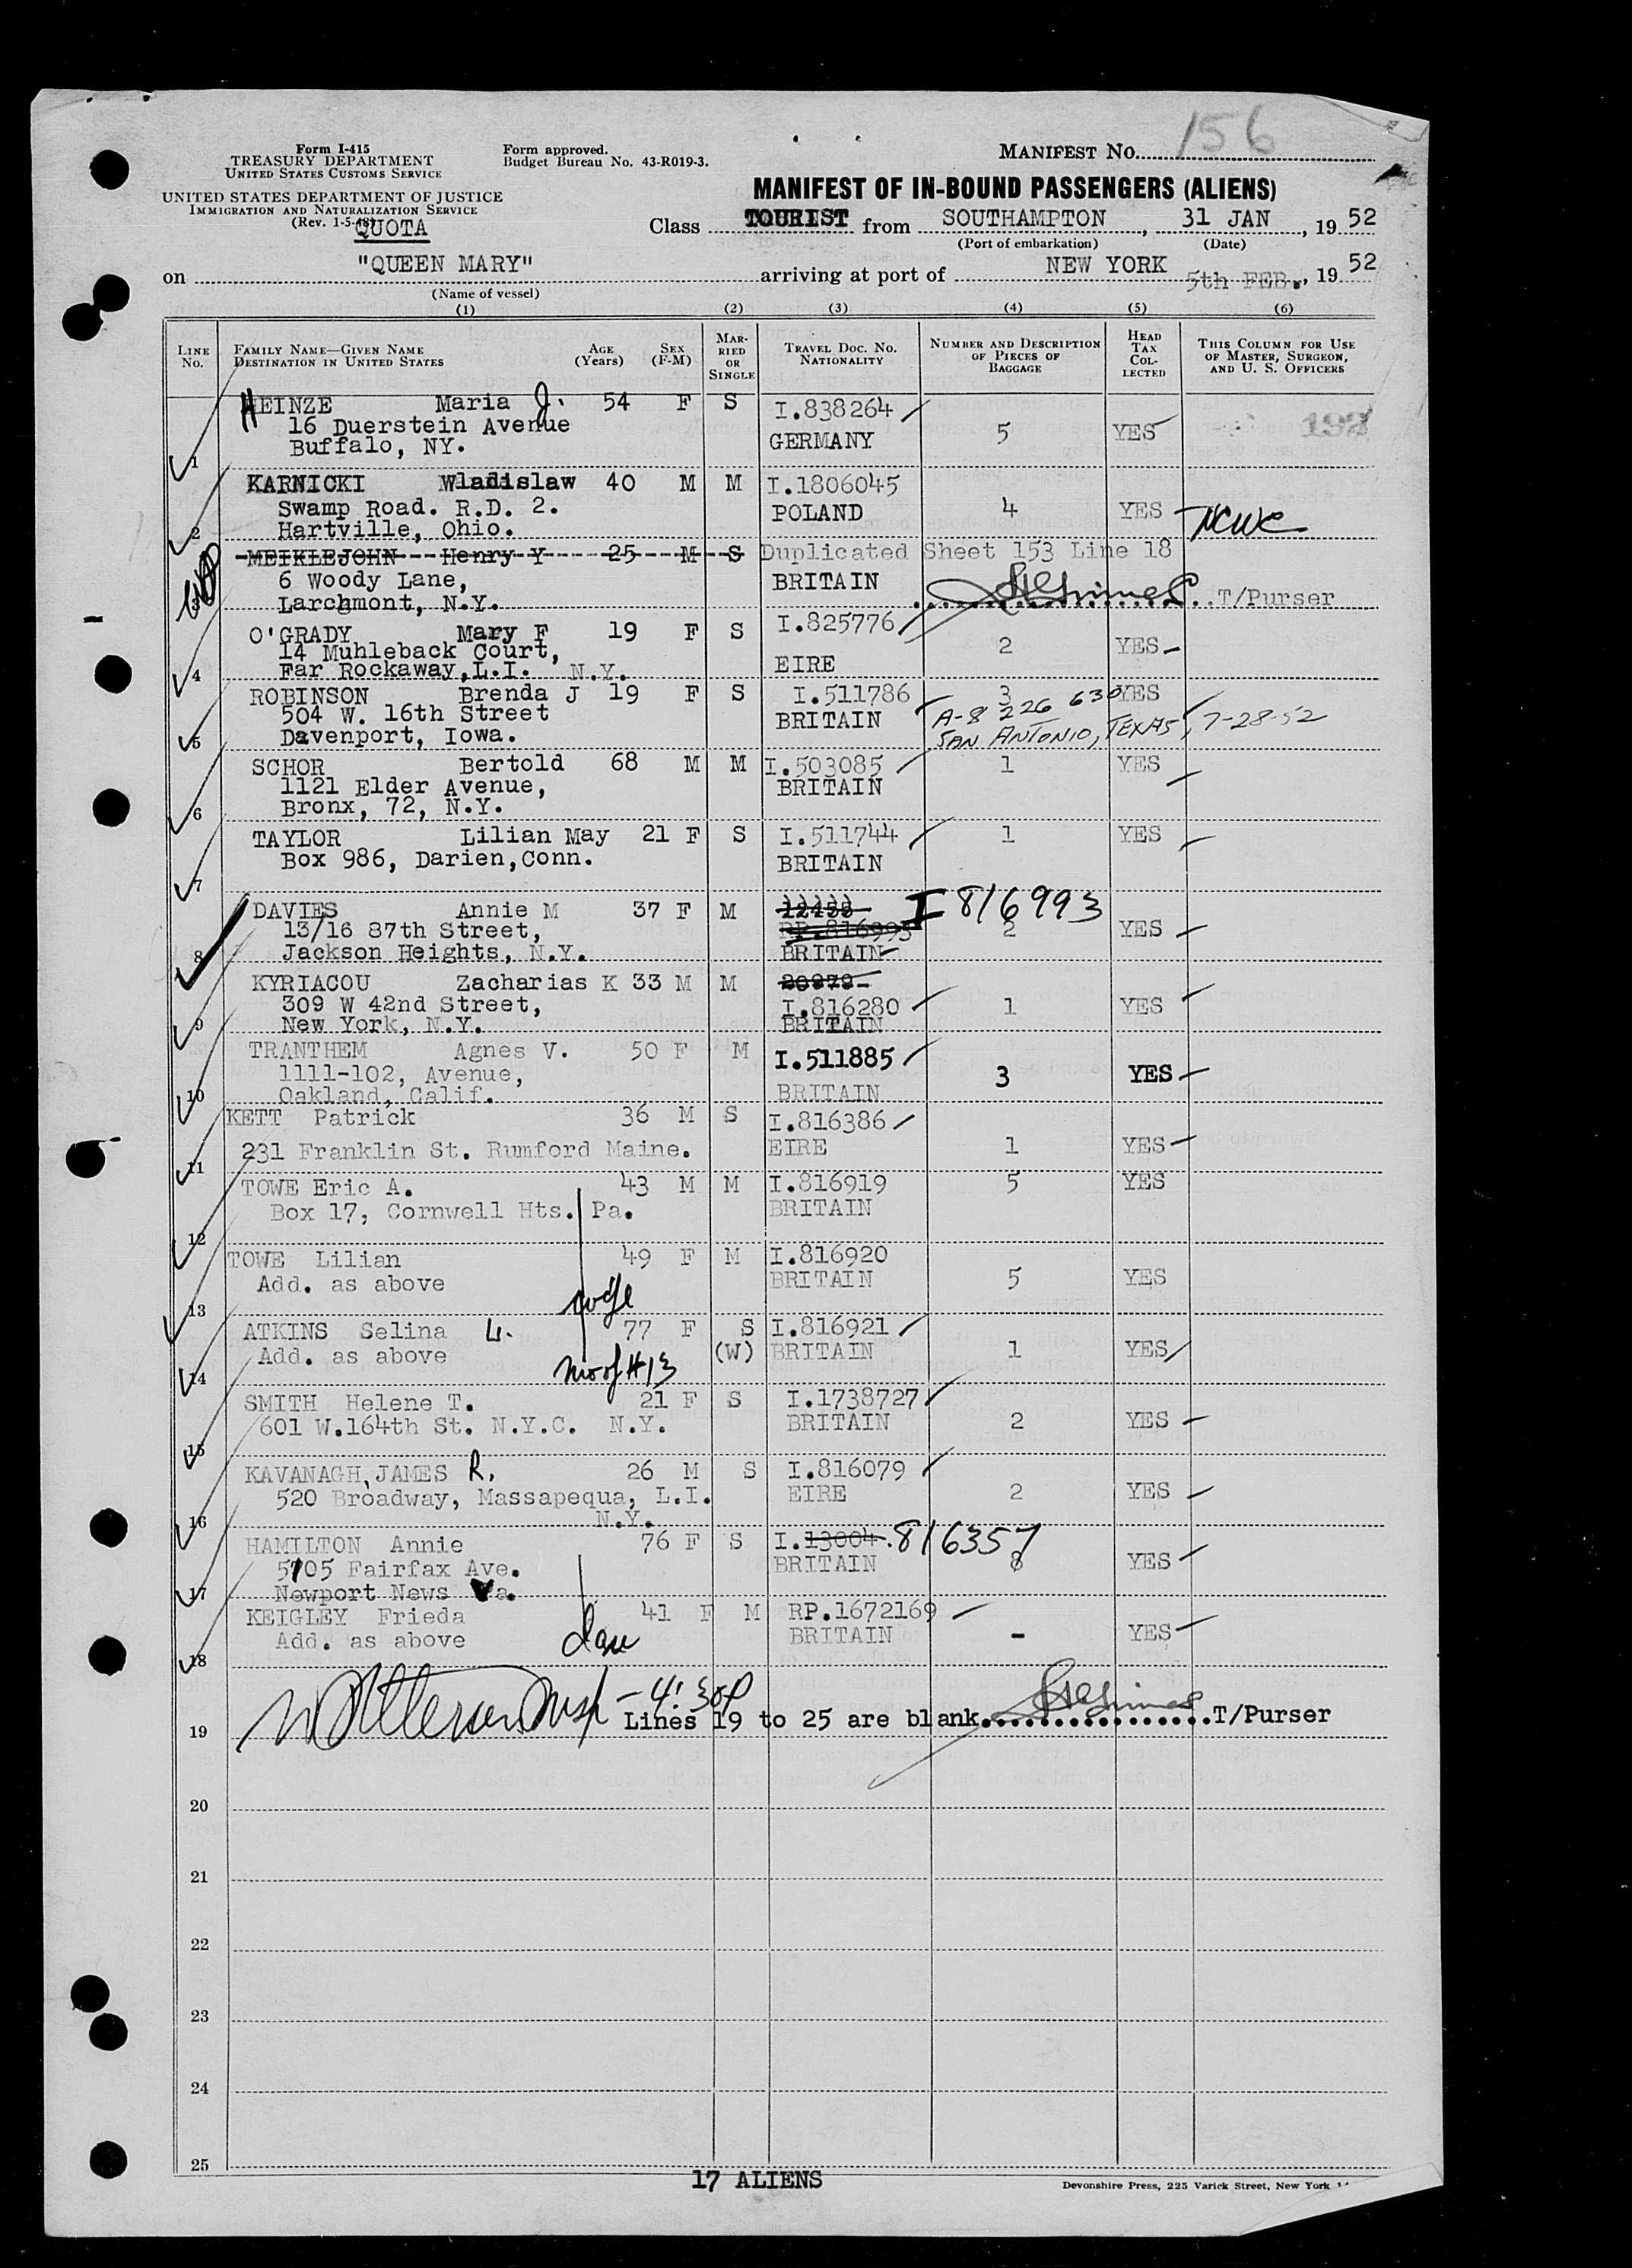 156
Form I-415
TREASURY DEPARTMENT
UNITED STATES CUSTOMS SERVICE
UNITED STATES DEPARTMENT OF JUSTICE
IMMIGRATION AND NATURALIZATION SERVICE
(Rev. 1-5-48)
QUOTA
Form approved.
Budget Bureau No. 43-R019-3.
MANIFEST NO.
MANIFEST OF IN-BOUND PASSENGERS (ALIENS)
Class TOURIST from SOUTHAMPTON, 31 JAN, 1952
(Port of embarkation) (Date)
on "QUEEN MARY" arriving at port of NEW YORK 5th FEB., 1952
(Name of vessel)
(1) (2) (3) (4) (5) (6)
LINE NO.
FAMILY NAME—GIVEN NAME
DESTINATION IN UNITED STATES
AGE (Years)
SEX (F-M)
MARRIED OR SINGLE
TRAVEL DOC. NO.
NATIONALITY
NUMBER AND DESCRIPTION OF PIECES OF BAGGAGE
HEAD TAX COLLECTED
THIS COLUMN FOR USE OF MASTER, SURGEON, AND U. S. OFFICERS
HEINZE Maria J. 54 F S I.838264
16 Duerstein Avenue 5 YES 192
Buffalo, NY. GERMANY
1
KARNICKI Wladislaw 40 M M I.1806045
Swamp Road. R.D. 2. POLAND 4 YES NCWC
Hartville, Ohio.
2
MEIKLEJOHN Henry Y 25 M S Duplicated Sheet 153 Line 18
6 Woody Lane, BRITAIN
Larchmont, N.Y. T/Purser
3
O'GRADY Mary F 19 F S I.825776
14 Muhleback Court, 2 YES
Far Rockaway, L.I. N.Y. EIRE
4
ROBINSON Brenda J 19 F S I.511786 3 YES
504 W. 16th Street BRITAIN A-8 226 630
Davenport, Iowa. SAN ANTONIO, TEXAS, 7-28-52
5
SCHOR Bertold 68 M M I.503085 1 YES
1121 Elder Avenue, BRITAIN
Bronx, 72, N.Y.
6
TAYLOR Lilian May 21 F S I.511744 1 YES
Box 986, Darien, Conn. BRITAIN
7
DAVIES Annie M 37 F M 12458 I 816993
13/16 87th Street, RP.816993 2 YES
Jackson Heights, N.Y. BRITAIN
8
KYRIACOU Zacharias K 33 M M 20878
309 W 42nd Street, I.816280 1 YES
New York, N.Y. BRITAIN
9
TRANTHEM Agnes V. 50 F M I.511885
1111-102, Avenue, 3 YES
Oakland, Calif. BRITAIN
10
KETT Patrick 36 M S I.816386
231 Franklin St. Rumford Maine. EIRE 1 YES
11
TOWE Eric A. 43 M M I.816919 5 YES
Box 17, Cornwell Hts. Pa. BRITAIN
12
TOWE Lilian 49 F M I.816920
Add. as above BRITAIN 5 YES
wife
13
ATKINS Selina L. 77 F S I.816921
Add. as above (W) BRITAIN 1 YES
mo of #13
14
SMITH Helene T. 21 F S I.1738727
601 W.164th St. N.Y.C. N.Y. BRITAIN 2 YES
15
KAVANAGH, JAMES R. 26 M S I.816079
520 Broadway, Massapequa, L.I. EIRE 2 YES
N.Y.
16
HAMILTON Annie 76 F S I.13004.816357
5705 Fairfax Ave. BRITAIN 8 YES
Newport News Va.
17
KEIGLEY Frieda 41 F M RP.1672169
Add. as above dau BRITAIN - YES
18
Insp - 4:30P
19 Lines 19 to 25 are blank. T/Purser
20
21
22
23
24
25
17 ALIENS
Devonshire Press, 225 Varick Street, New York